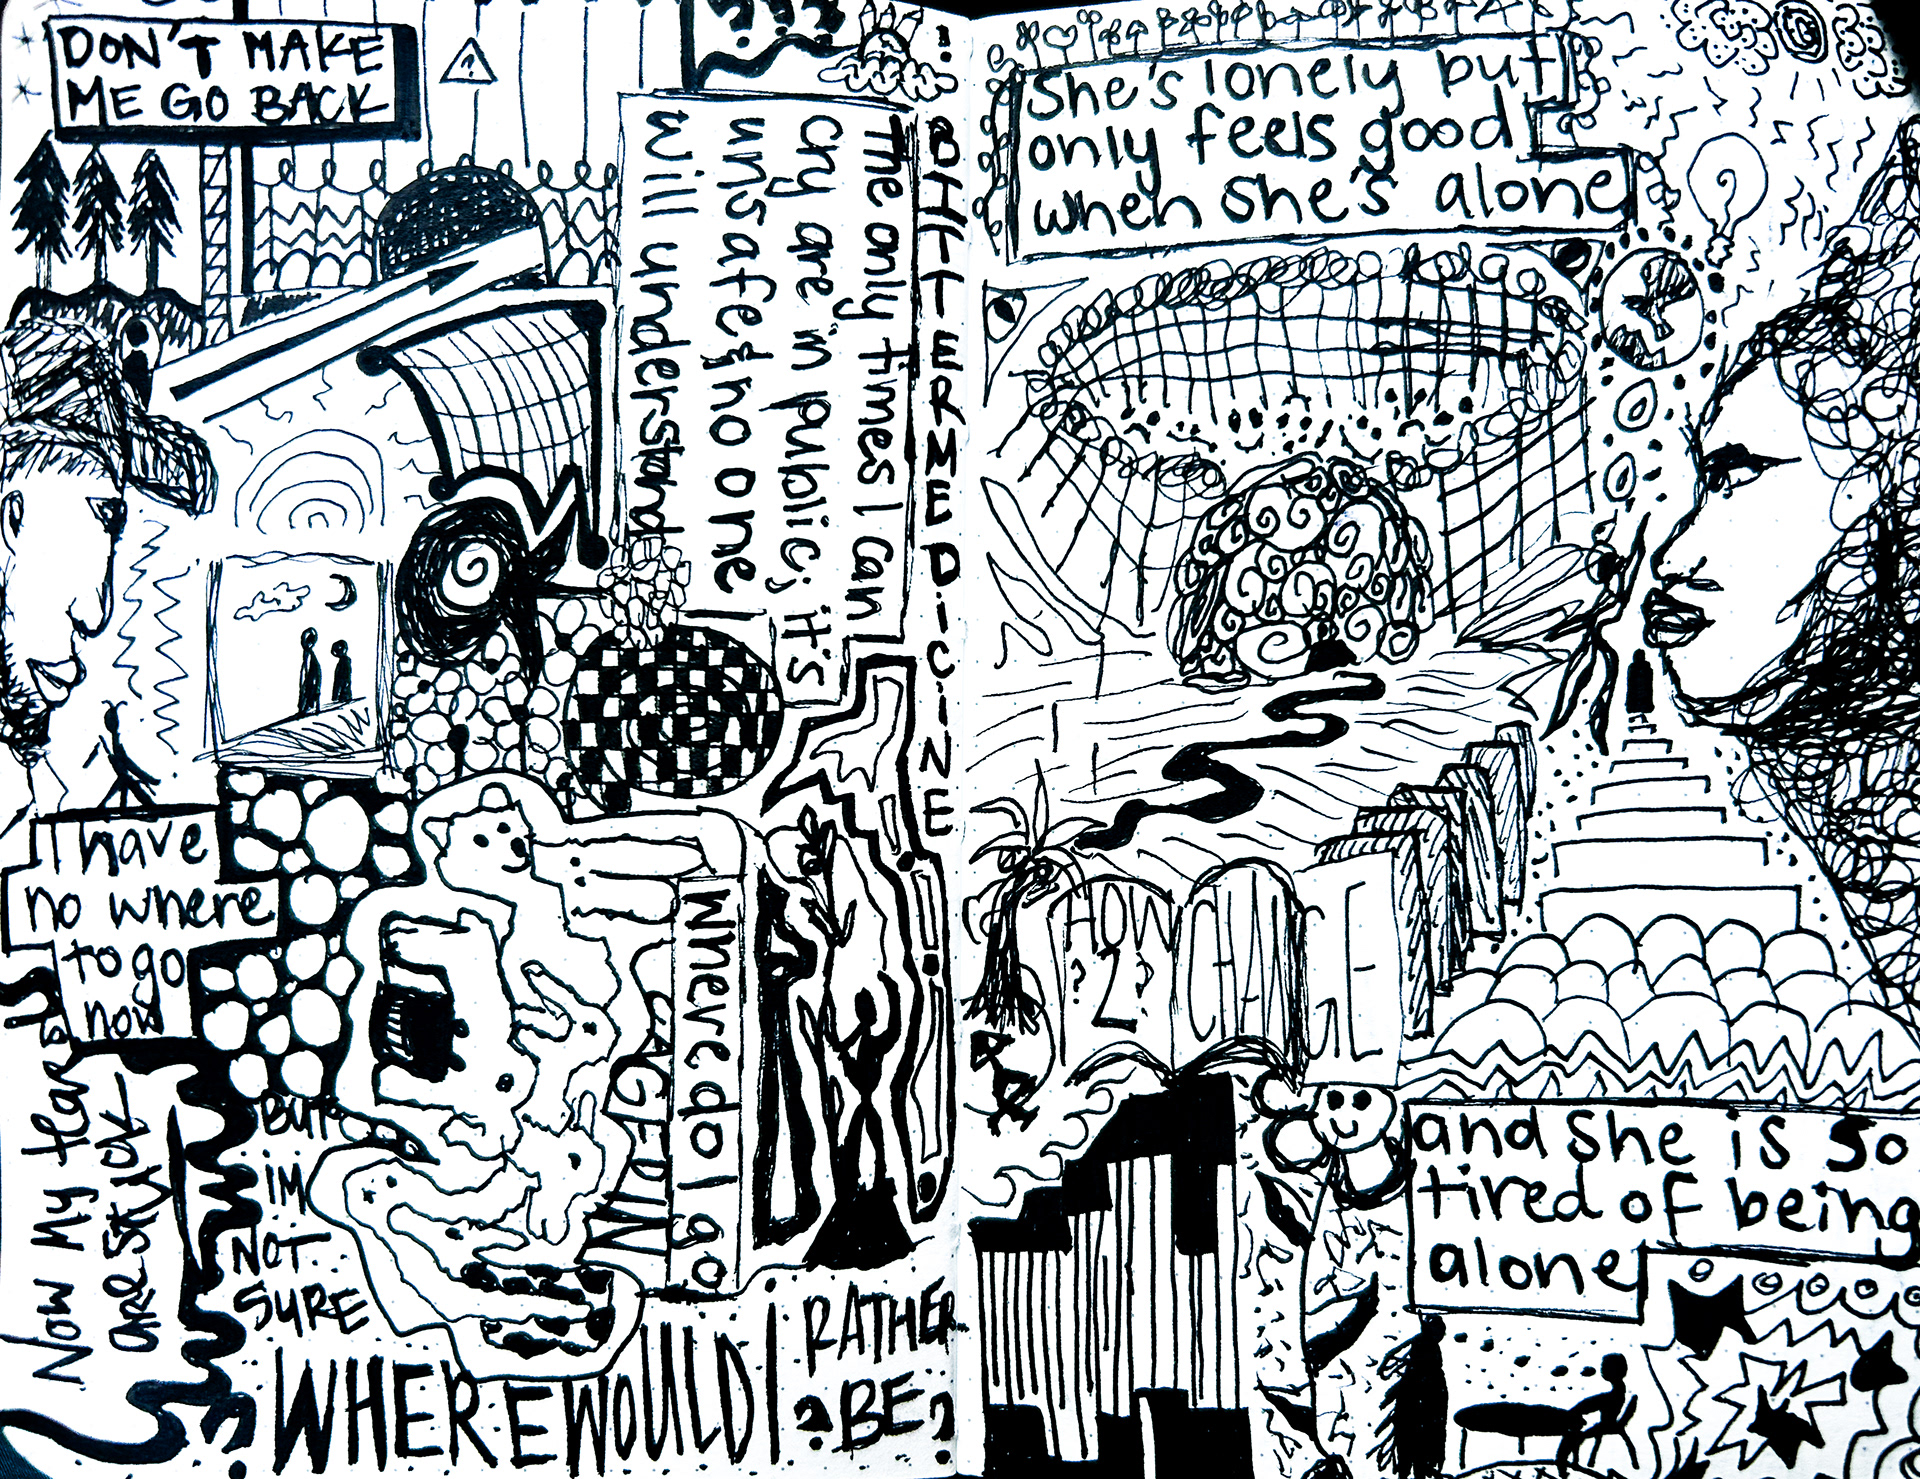 DON'T MAKE
ME GO BACK
The only times I can
cry are in public; it's
unsafe & no one
will understand
BITTER MEDICINE
I have
no where
to go
now
Now my tears
are stuck
BUT
IM
NOT
SURE
CAGED IN
where do I go
WHERE WOULD I
RATHER
BE?
She's lonely but
only feels good
when she's alone
HOW
2
CHANGE
and she is so
tired of being
alone